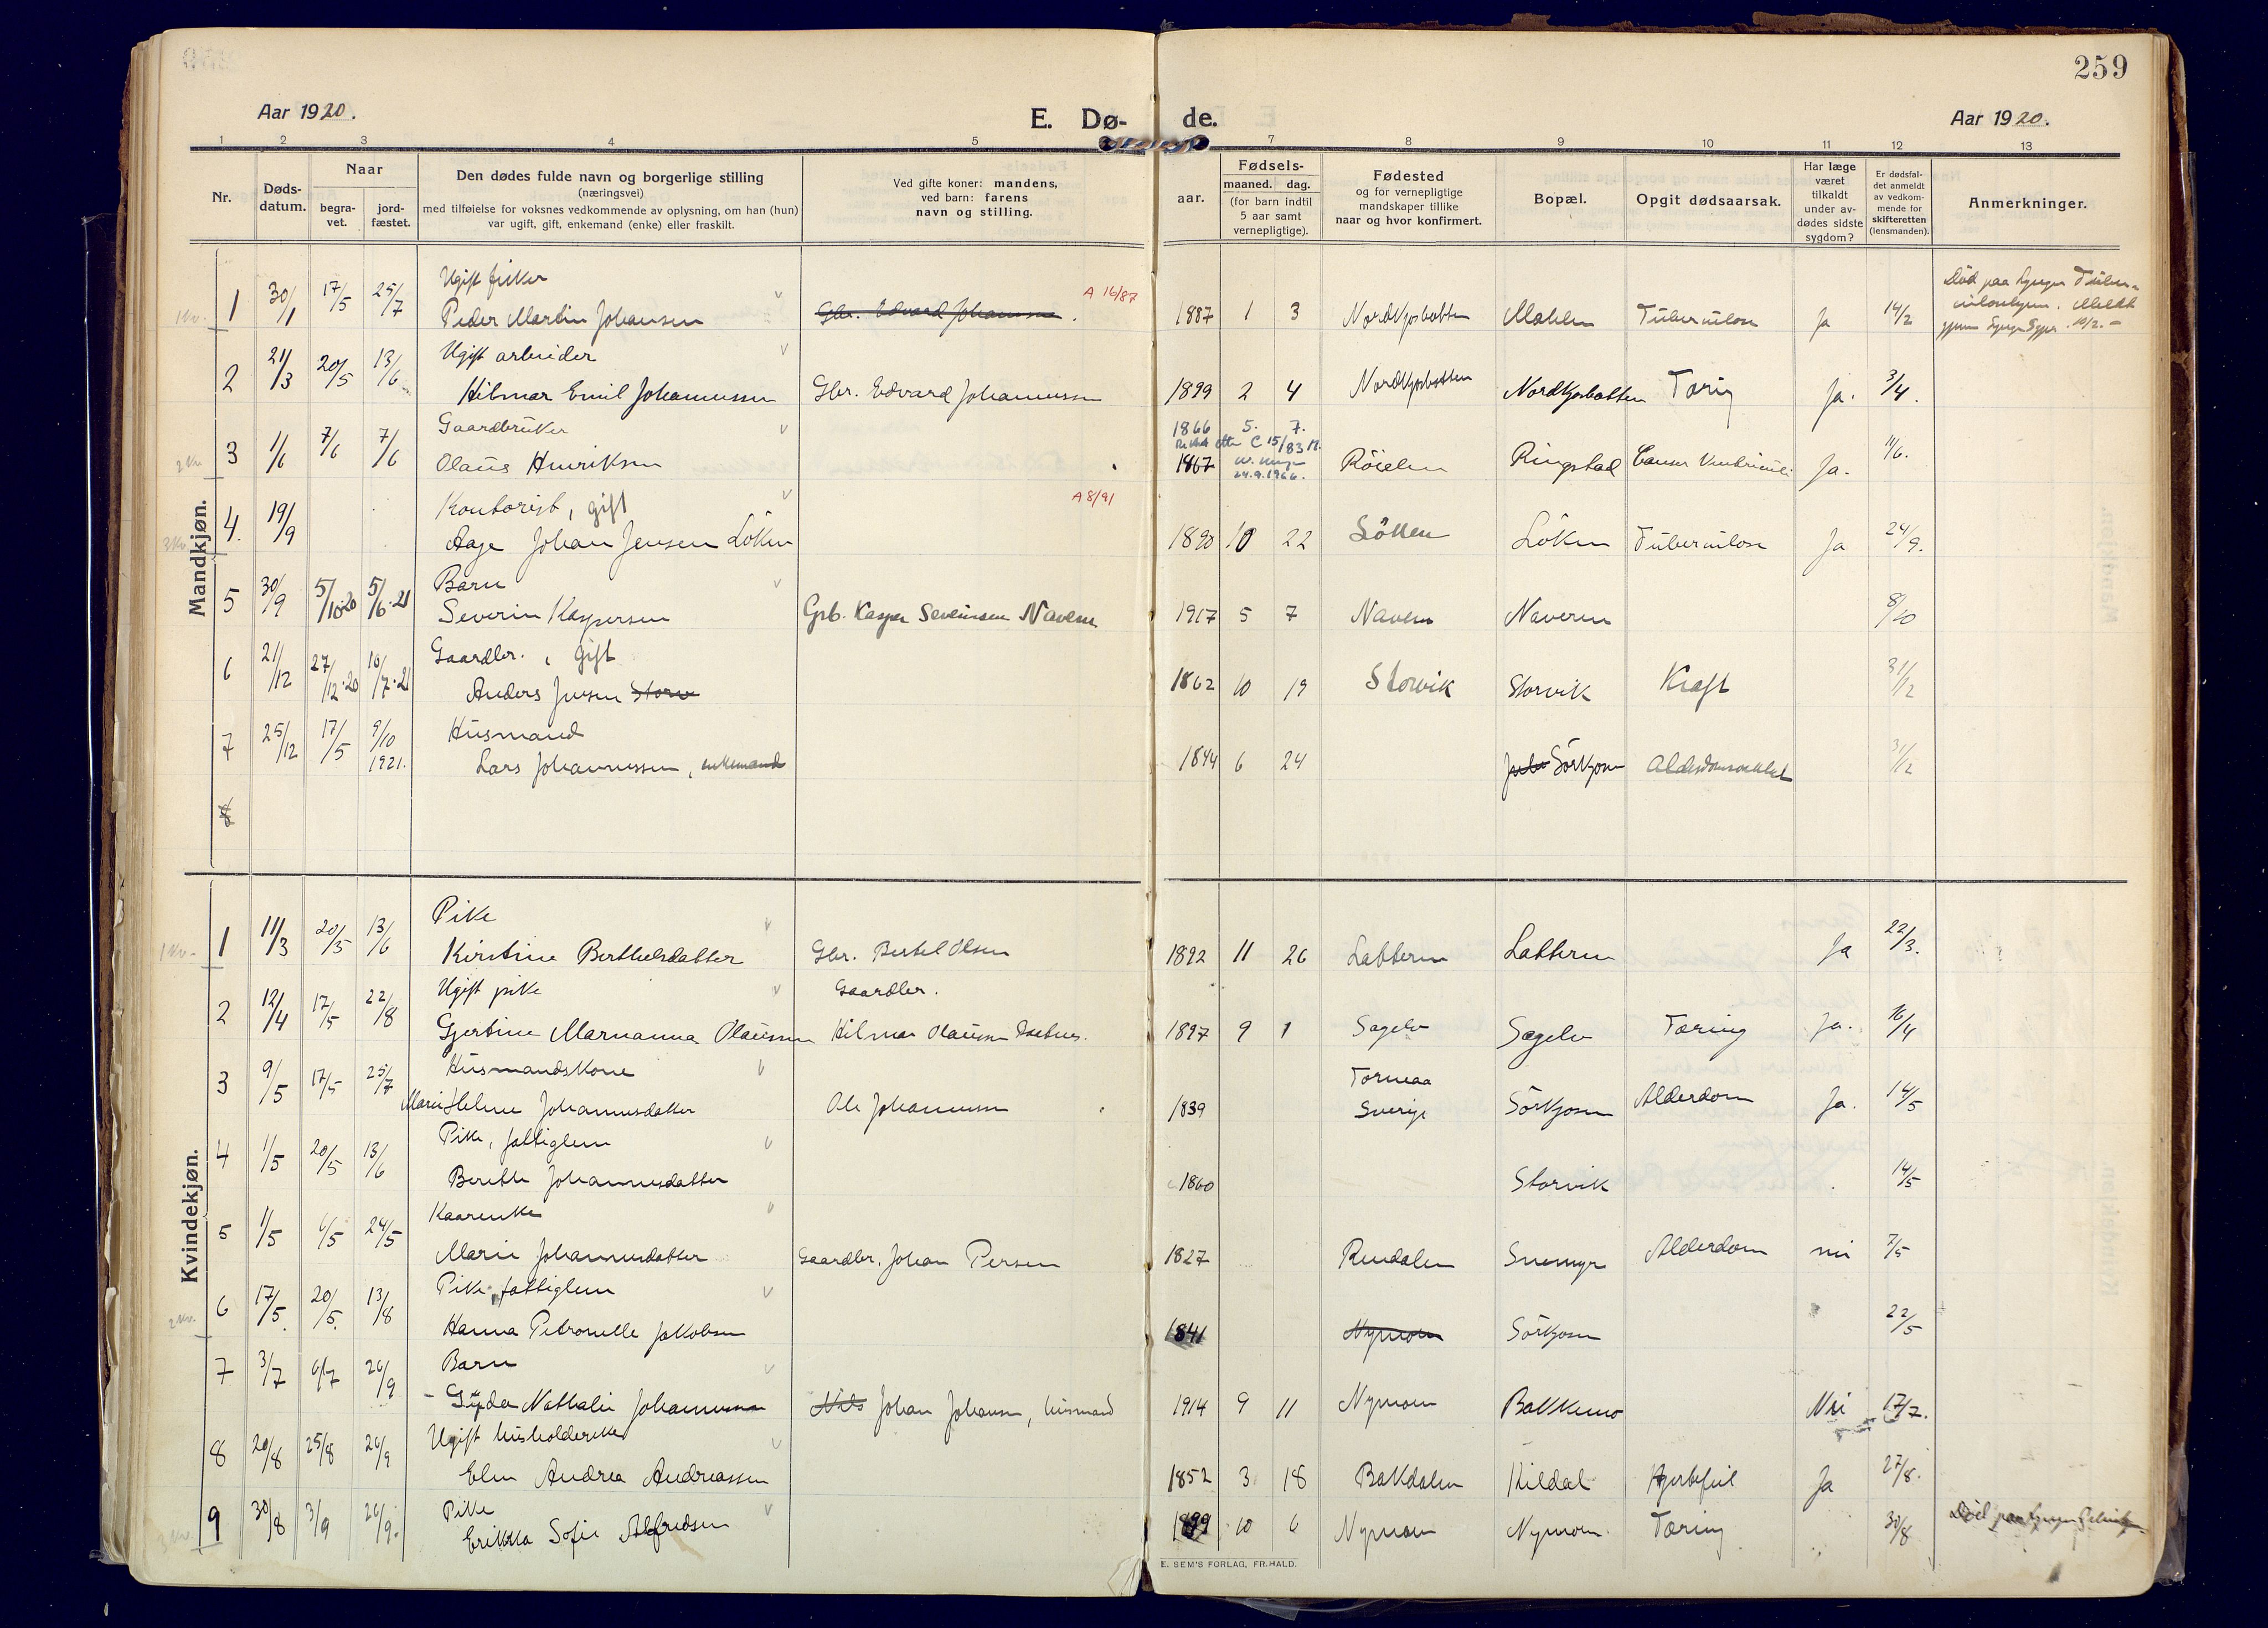 259
Aar 1920.
E. Dø-
de.
Aar 1920.
1 2 3 4 5 7 8 9 10 11 12 13
Nr.
Døds-
datum.
Naar
begra-
vet.
jord-
fæstet.
Den dødes fulde navn og borgerlige stilling
(næringsvei)
med tilføielse for voksnes vedkommende av oplysning, om han (hun)
var ugift, gift, enkemand (enke) eller fraskilt.
Ved gifte koner: mandens,
ved barn: farens
navn og stilling.
aar.
Fødsels-
maaned. dag.
(for barn indtil
5 aar samt
vernepligtige).
Fødested
og for vernepligtige
mandskaper tillike
naar og hvor konfirmert.
Bopæl.
Opgit dødsaarsak.
Har læge
været
tilkaldt
under av-
dødes sidste
sygdom?
Er dødsfal-
det anmeldt
av vedkom-
mende for
skifteretten
(lensmanden).
Anmerkninger.
Mandkjøn.
Ugift fisker
1 30/1 17/5 25/7 Peder Martin Johansen Gbr. Edvard Johannssen. A 16/87 1887 1 3 Nordkjosbotten Tuberculose Ja 14/2
Død paa Lyngen Tuber-
culosehjem. Meldt
10/2. -
Ugift arbeider
2 21/3 20/5 13/6 Hilmar Emil Johannessen Gbr. Edvard Johannessen 1899 2 4 Nordkjosbotten Nordkjosbotten Tæring Ja. 3/4.
Gaardbruker
1866 5. 7.
C 15/83
3 1/6 7/6 7/6 Olaus Henriksen 1867 24.9.1966. Ringstad Cancer Ventriculi Ja. 11/6.
Kontorist, gift
4. 19/9 Aage Johan Jensen Løken A 8/91 1890 10 22 Løken Løken Tuberculose Ja 24/9.
Barn
5 30/9 5/10.20 5/6.21 Severin Kaspersen Grb. Kasper Severinsen Naveren 1917 5 7 Naveren Naveren 8/10
Gaardbr., gift
6 21/12 27/12.20 10/7.21 Anders Jensen Storv 1862 10 19 Storvik Storvik Kræft 31/12
Husmand
7 25/12 17/5 9/10 1921. Lars Johannessen, enkemand 1844 6 24 Sørkjosen Alderdomssvakhet 31/12
8
Kvindekjøn.
Pike
1 11/3 20/5 13/6 Kirstine Berthelsdatter Gbr. Bertel Olsen 1892 11 26 Latteren Latteren Ja 22/3.
Ugift pike Gaardbr.
2 12/4 17/5 22/8 Gjertine Marnanna Olaussen Hilmar Olaussen 1897 9 1 Sagelv Sagelv Tæring Ja. 16/4
Husmandskone
3 9/5 17/5 25/7 Marie Helene Johannesdatter Ole Johannessen 1839 Torneaa Sverige Sørkjosen Alderdom Ja. 14/5
Pike, fattiglem
4 1/5 20/5 13/6 Berethe Johannesdatter 1860 Storvik 14/5
Kaarenke
5 1/5 6/5 24/5 Marie Johannesdatter Gaardbr. Johan Persen 1827 Rendalen Snemyr Alderdom nei 7/5
Pike, fattiglem
6 17/5. 20/5. 13/8 Hanna Petronelle Jakobsen 1841 Nymoen Sørkjosen 22/5
Barn
7 3/7 6/7 26/9 Gyda Nathalie Johannessen Nils Johan Johansen, husmand 1914 9 11 Nymoen Bakkemo Nei 17/7.
Ugift husholderske
8 20/8 25/8 26/9 Elen Andrea Andreassen 1852 3 18 Bakdalen Kildal Hjertefeil Ja 27/8.
Pike
9 30/8 3/9 26/9. Erikka Sofie Alfredsen 1899 10 6 Nymoen Nymoen. Tæring 30/8 Død paa Lyngen
E. SEM'S FORLAG, FR.HALD.